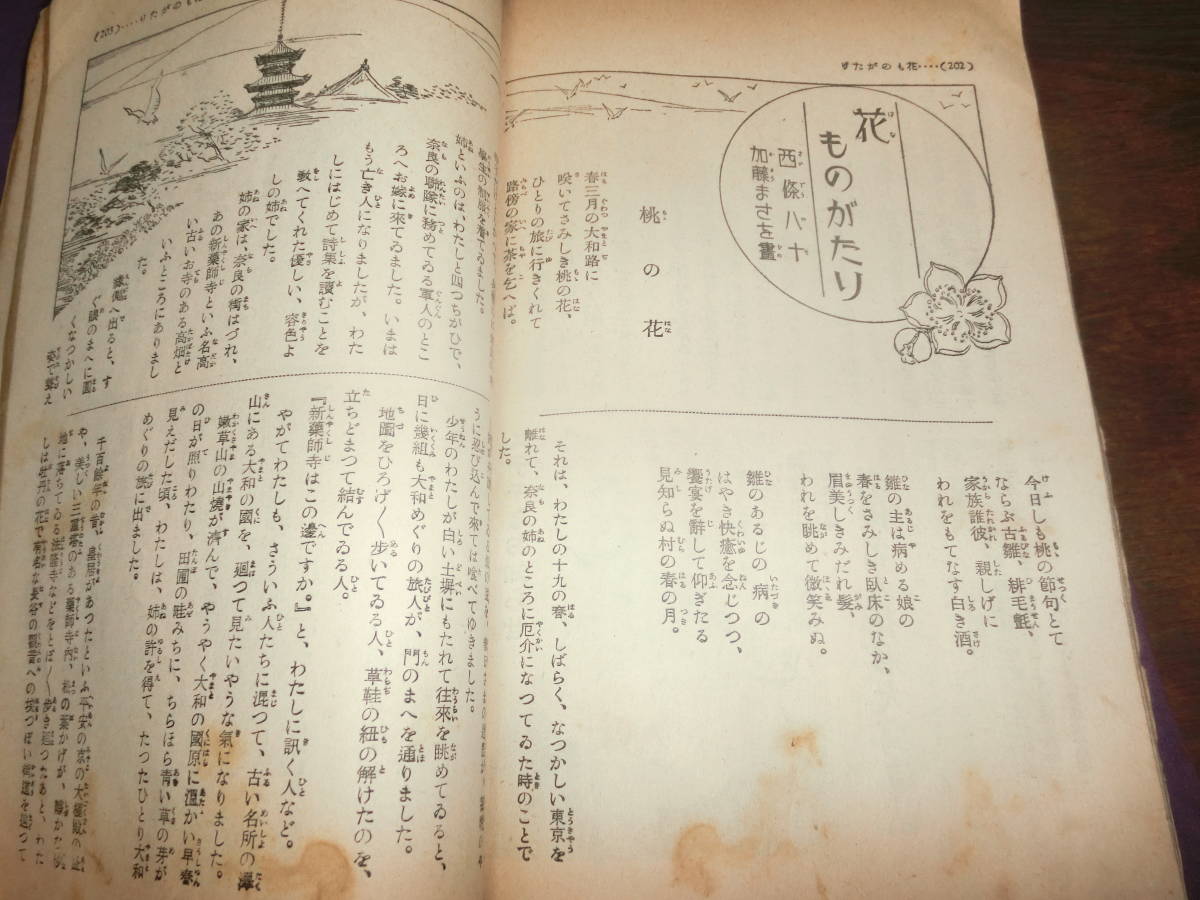 花ものがたり‥‥(202)
花
ものがたり
西條八十
加藤まさを畫
桃の花
春三月の大和路に
咲いてさみしき桃の花、
ひとりの旅に行きくれて
路傍の家に茶を乞へば。
今日しも桃の節句とて
ならぶ古雛、緋毛氈、
家族誰彼、親しげに
われをもてなす白き酒。
雛の主は病める娘の
春をさみしき臥床のなか、
眉美しきみだれ髮、
われを眺めて微笑みぬ。
雛のあるじの病の
はやき快癒を念じつつ、
饗宴を辭して仰ぎたる
見知らぬ村の春の月。
それは、わたしの十九の春、しばらく、なつかしい東京を
離れて、奈良の姉のところに厄介になつてゐた時のことで
した。
(203)‥‥りたがのも
を着てゐました。
姉といふのは、わたしと四つちがひで、
奈良の聯隊に務めてゐる軍人のとこ
ろへお嫁に來てゐました。いまは
もう亡き人になりましたが、わた
しにはじめて詩集を讀むことを
教へてくれた優しい、容色よ
しの姉でした。
姉の家は、奈良の街はづれ、
あの新藥師寺といふ名高
い古いお寺のある高畑と
いふところにありまし
た。
縁側へ出ると、す
ぐ眼のまへに
くなつかしい
うに忍び込んで來ては喰べてゆきました。
少年のわたしが白い土塀にもたれて往來を眺めてゐると、
日に幾組も大和めぐりの旅人が、門のまへを通りました。
地圖をひろげ〳〵歩いてゐる人、草鞋の紐の解けたのを、
立ちどまつて結んでゐる人。
『新藥師寺はこの邊ですか。』と、わたしに訊く人など。
やがてわたしも、さういふ人たちに混つて、古い名所の澤
山にある大和の國を、廻つて見たいやうな氣になりました。
嫩草山の山燒が濟んで、やうやく大和の國原に温かい早春
の日が照りわたり、田圃の畦みちに、ちらほら青い草の芽が
見えだした頃、わたしは、姉の許を得て、たつたひとり大和
めぐりの旅に出ました。
千百餘年の昔、皇居があつたといふ平安の京の大極殿の
や、美しい三重塔のある藥師寺内、松の葉かげが、靜かた
地に落ちてゐる法隆寺などをとぼ〳〵歩き廻つたあと、わた
しは牡丹の花で有名な長谷の觀音への埃つぽい街道を辿つて